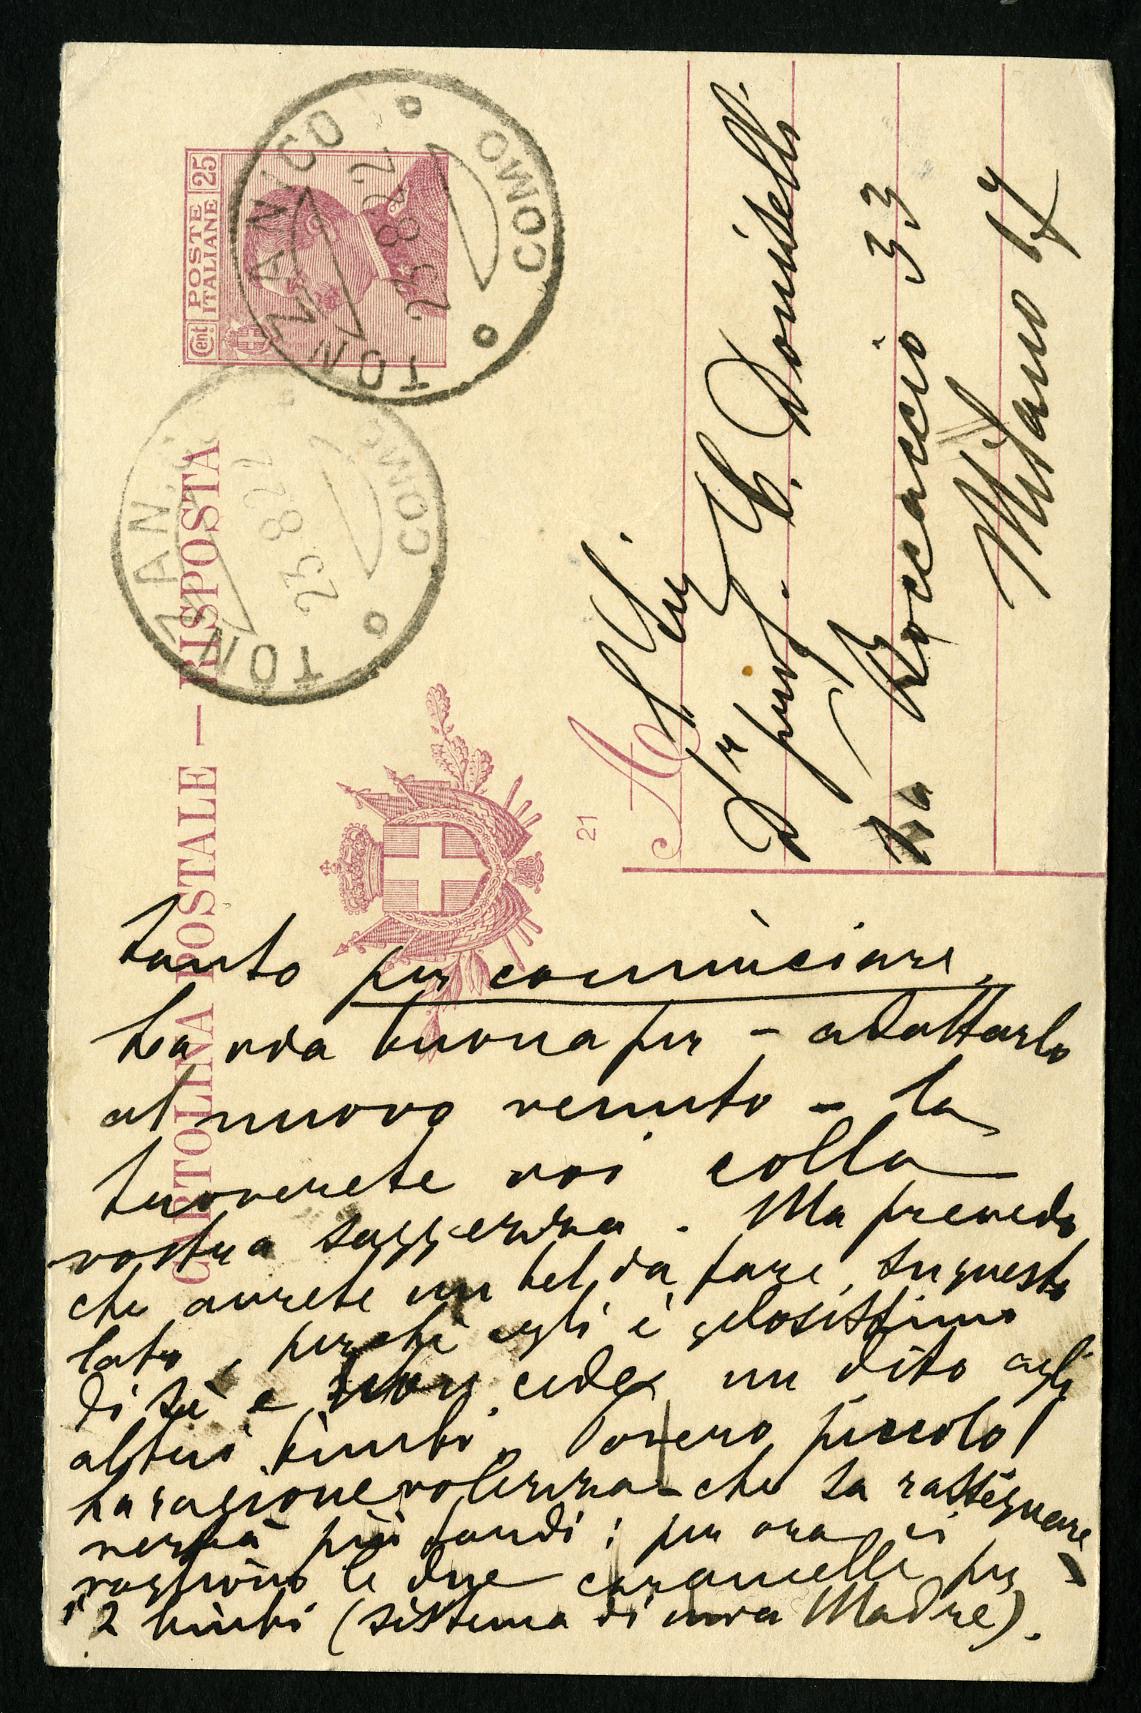 CARTOLINA POSTALE — RISPOSTA
Cent 25
POSTE
ITALIANE
TONZANICO
COMO
23 8 22
TONZANICO
COMO
23 8 22
21
A
Sig
Dr prof. C. Doniselli
Via Boccaccio 33
Milano 17
tanto per cominciare.
La via buona per – adattarlo
al nuovo venuto – la
troverete voi colla
vostra saggezza. Ma prevedo
che avrete un bel da fare, su questo
lato, perchè egli è gelosissimo
di sè e non cede un dito agli
altri bimbi. Povero piccolo!
La ragionevolezza – che sa rassegnare
verrà più tardi; per ora ci
vogliono le due caramelle per
i 2 bimbi (sistema di Madre).